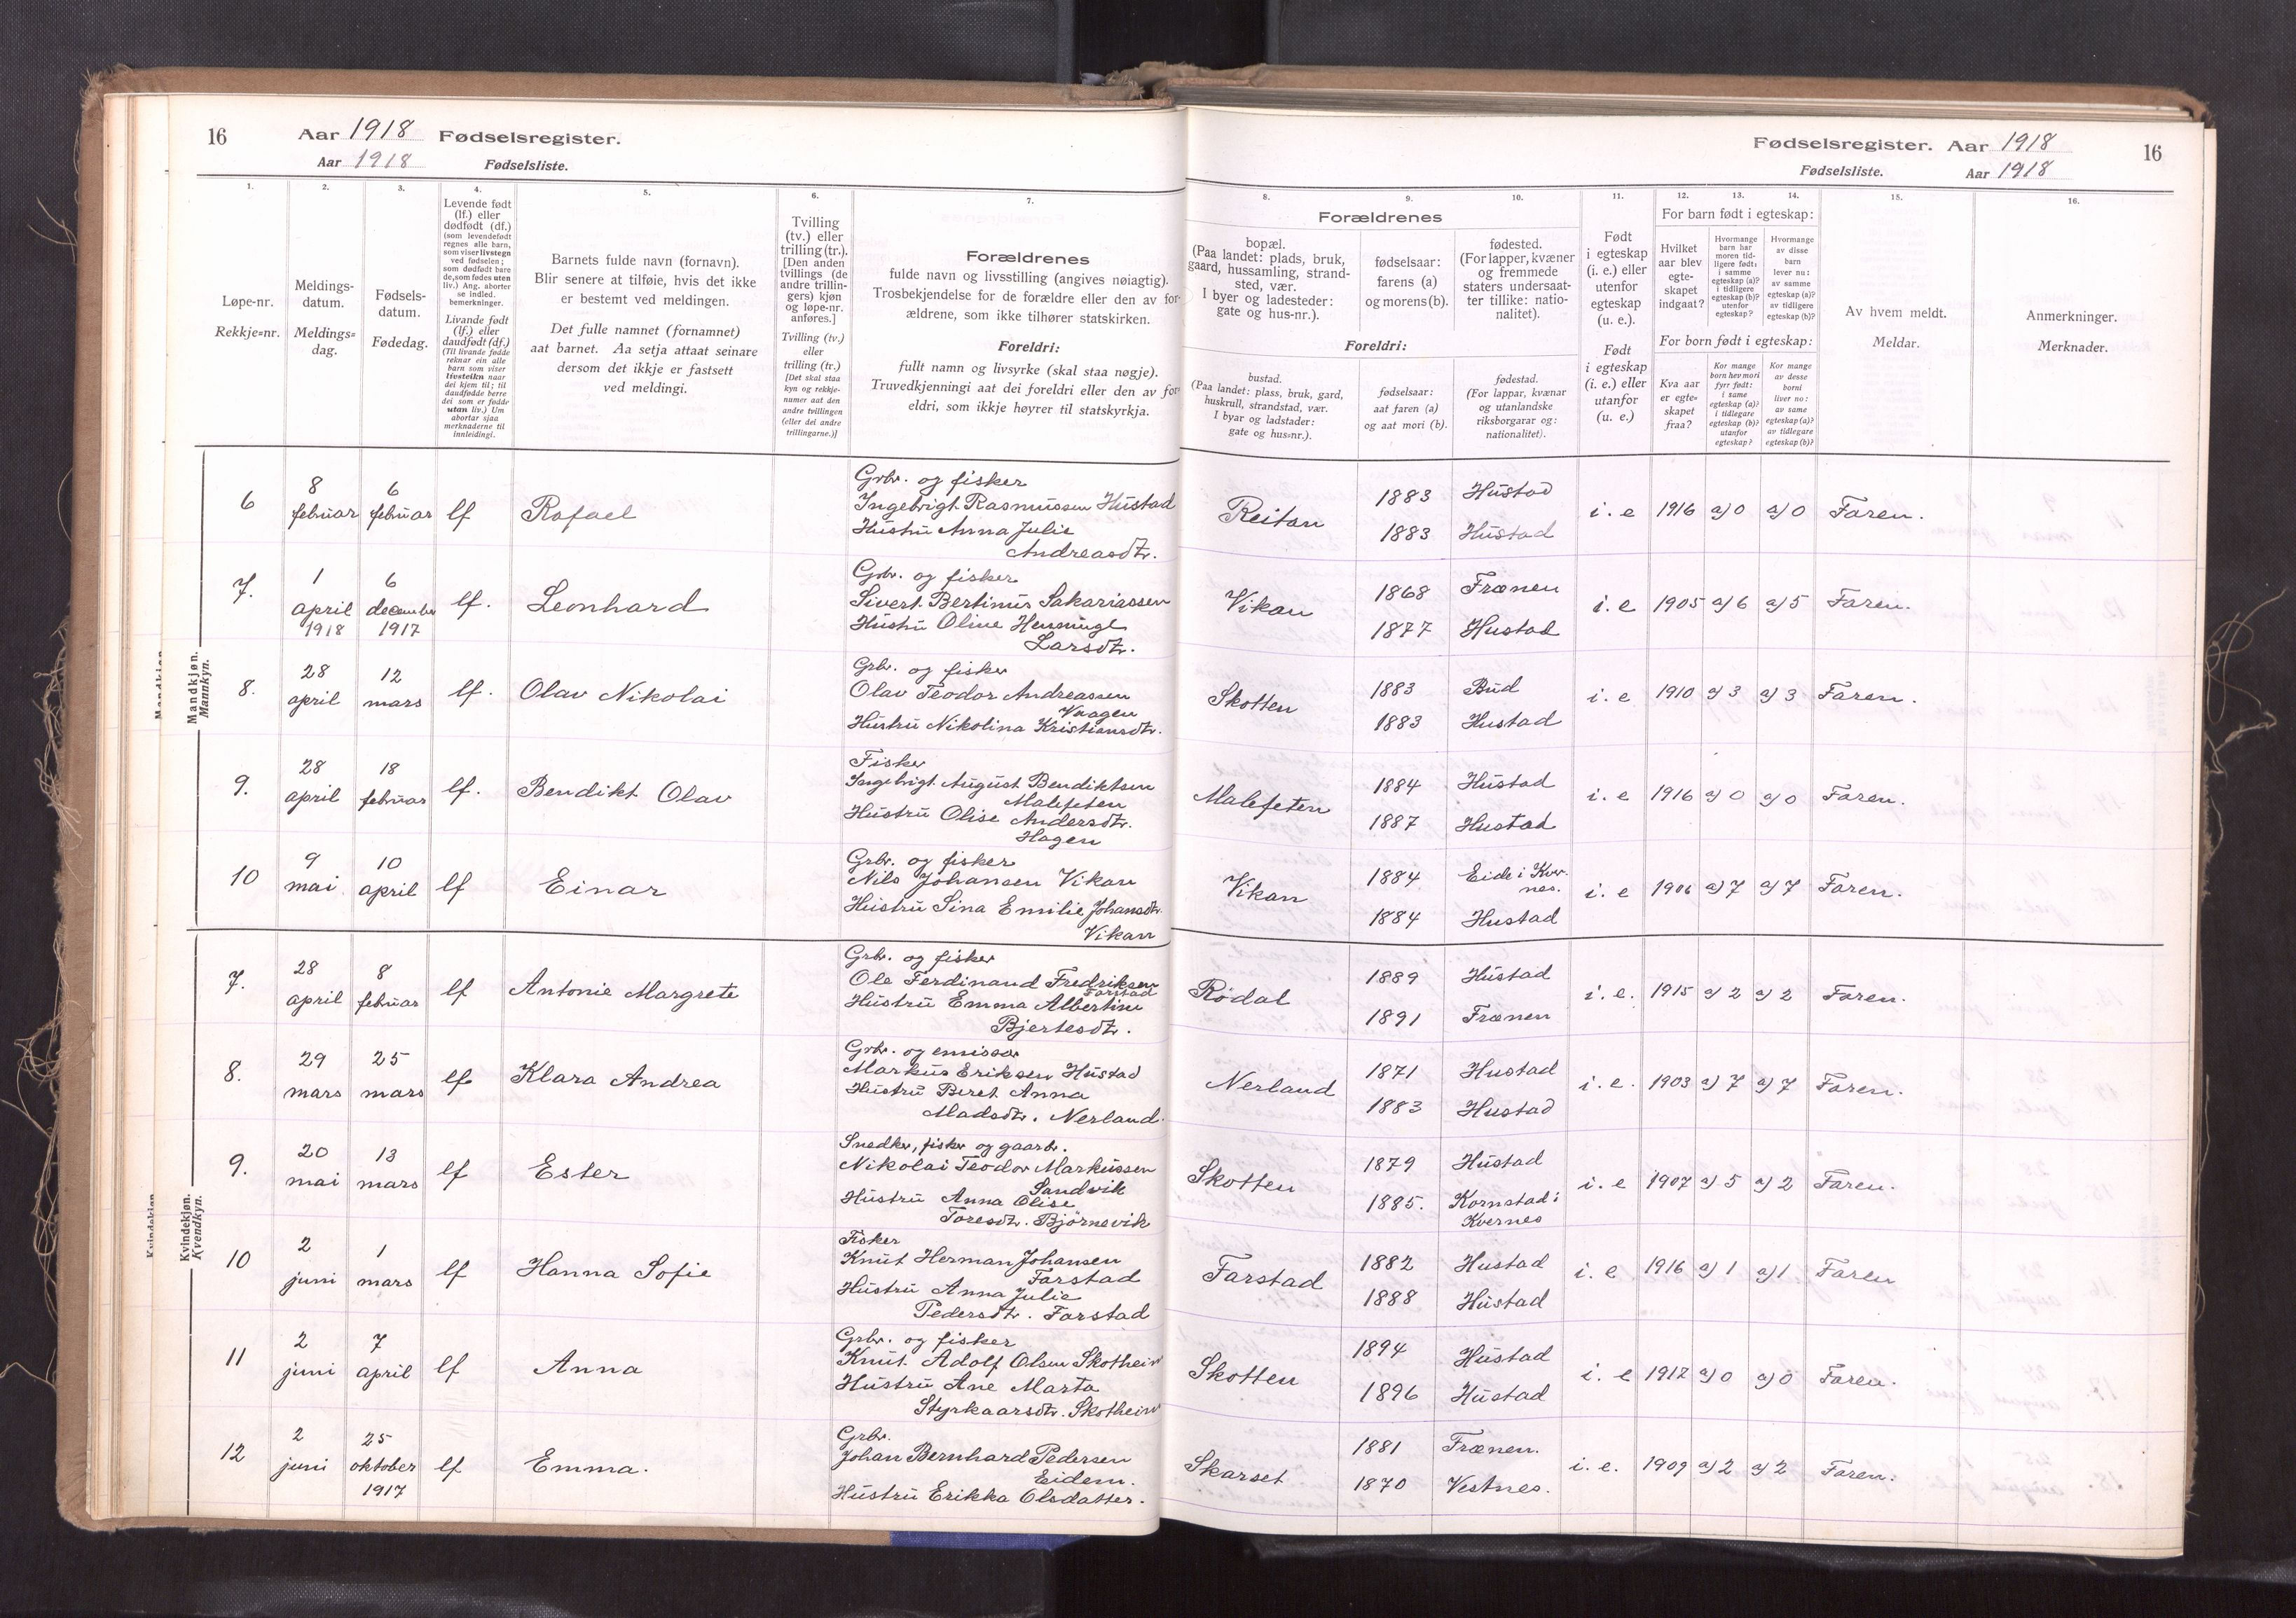 16 Aar 1918 Fødselsregister.
Aar 1918 Fødselsliste.
Fødselsregister. Aar 1918 16
Fødselsliste. Aar 1918
1. 2. 3. 4. 5. 6. 7. 8. 9. 10. 11. 12. 13. 14. 15. 16.
Løpe-nr.
Rekkje=nr.
Meldings-
datum.
Meldings=
dag.
Fødsels-
datum.
Fødedag.
Levende født
(lf.) eller
dødfødt (df.)
(som levendefødt
regnes alle barn,
som viser livstegn
ved fødselen;
som dødfødt bare
de, som fødes uten
liv.) Ang. aborter
se indled.
bemerkninger.
Livande født
(lf.) eller
daudfødt (df.)
(Til livande fødde
reknar ein alle
barn som viser
livsteikn naar
dei kjem til; til
daudfødde berre
dei som er fødde
utan liv.) Um
abortar sjaa
merknaderne til
innleidingi.
Barnets fulde navn (fornavn).
Blir senere at tilføie, hvis det ikke
er bestemt ved meldingen.
Det fulle namnet (fornamnet)
aat barnet. Aa setja attaat seinare
dersom det ikkje er fastsett
ved meldingi.
Tvilling
(tv.) eller
trilling (tr.).
[Den anden
tvillings (de
andre trillin-
gers) kjøn
og løpe-nr.
anføres.]
Tvilling (tv.)
eller
trilling (tr.)
[Det skal staa
kyn og rekkje-
numer aat den
andre tvillingen
(eller dei andre
trillingarne.)]
Forældrenes
fulde navn og livsstilling (angives nøiagtig).
Trosbekjendelse for de forældre eller den av for-
ældrene, som ikke tilhører statskirken.
Foreldri:
fullt namn og livsyrke (skal staa nøgje).
Truvedkjenningi aat dei foreldri eller den av for-
eldri, som ikkje høyrer til statskyrkja.
Forældrenes
bopæl.
(Paa landet: plads, bruk,
gaard, hussamling, strand-
sted, vær.
I byer og ladesteder:
gate og hus-nr.).
fødselsaar:
farens (a)
og morens (b).
fødested.
(For lapper, kvæner
og fremmede
staters undersaat-
ter tillike: natio-
nalitet).
Foreldri:
bustad.
(Paa landet: plass, bruk, gard,
huskrull, strandstad, vær.
I byar og ladstader:
gate og hus=nr.).
fødselsaar:
aat faren (a)
og aat mori (b).
fødestad.
(For lappar, kvænar
og utanlandske
riksborgarar og:
nationalitet).
Født
i egteskap
(i. e.) eller
utenfor
egteskap
(u. e.).
Født
i egteskap
(i. e.) eller
utanfor
(u. e.)
For barn født i egteskap:
Hvilket
aar blev
egte-
skapet
indgaat?
Hvormange
barn har
moren tid-
ligere født:
i samme
egteskap (a)?
i tidligere
egteskap (b)?
utenfor
egteskap?
Hvormange
av disse
barn
lever nu:
av samme
egteskap (a)?
av tidligere
egteskap (b)?
For born født i egteskap:
Kva aar
er egte=
skapet
fraa?
Kor mange
born hev mori
fyrr født:
i same
egteskap (a)?
i tidlegare
egteskap (b)?
utanfor
egteskap?
Kor mange
av desse
borni
liver no:
av same
egteskap (a)?
av tidlegare
egteskap (b)?
Av hvem meldt.
Meldar.
Anmerkninger.
Merknader.
Mandkjøn.
Mannkyn.
6 8 februar 6 februar lf Rafael
Grbr. og fisker
Ingebrigt Rasmussen Hustad
Hustru Anna Julie
Andreasdtr.
Reitan 1883 Hustad i. e 1916 a) 0 a) 0 Faren.
1883 Hustad
7. 1 april 1918 6 december 1917 lf. Leonhard
Grbr. og fisker
Sivert Bertinus Sakariassen
Hustru Oline
Larsdtr.
Vikan 1868 Frænen i. e 1905 a) 6 a) 5 Faren.
1877 Hustad
8. 28 april 12 mars lf. Olav Nikolai
Grbr. og fisker
Olav Teodor Andreassen
Vaagen
Hustru Nikolina Kristiansdtr.
Skotten 1883 Bud i. e 1910 a) 3 a) 3 Faren.
1883 Hustad
9. 28 april 18 februar lf. Bendikt Olav
Fisker
Ingebrigt August Bendiktsen
Malefeten
Hustru Olise Andersdtr.
Hagen
Malefeten 1884 Hustad i. e 1916 a) 0 a) 0 Faren.
1887 Hustad
10 9 mai 10 april lf Einar
Grbr. og fisker
Nils Johansen Vikan
Hustru Sina Emilie Johansdtr.
Vikan
Vikan 1884 Eide i Kver-
nes.
i. e 1906 a) 7 a) 7 Faren.
1884 Hustad
Kvindekjøn.
Kvendkyn.
7. 28 april 8 februar lf Antonie Margrete
Grbr. og fisker
Ole Ferdinand Fredriksen
Farstad
Hustru Emma Albertine
Bjertesdtr.
Rödal 1889 Hustad i. e. 1915 a) 2 a) 2 Faren.
1891 Frænen
8. 29 mars 25 mars lf Klara Andrea
Grbr. og emissær
Markus Eriksen Hustad
Hustru Beret Anna
Madsdtr. Nerland.
Nerland 1871 Hustad i. e. 1903 a) 7 a) 7 Faren.
1883 Hustad
9. 20 mai 13 mars lf Ester
Snedker, fisker og gaarbr.
Nikolai Teodor Markussen
Sandvik
Hustru Anna Olise
Toresdtr. Björnsvik
Skotten 1879 Hustad i. e 1907 a) 5 a) 2 Faren.
1885. Kornstad i
Kvernes
10 2 juni 1 mars lf Hanna Sofie
Fisker
Knut Herman Johansen
Farstad
Hustru Anna Julie
Pedersdtr. Farstad
Farstad 1882 Hustad i. e 1916 a) 1 a) 1 Faren
1888 Hustad
11 2 juni 7 april lf Anna
Grbr. og fisker
Knut Adolf Olsen Skotheim
Hustru Ane Marta
Styrkaarsdtr. Skotheim
Skotten 1894 Hustad i. e 1917 a) 0 a) 0 Faren.
1896 Hustad
12 2 juni 25 oktober 1917 lf Emma.
Grbr.
Johan Bernhard Pedersen
Eidem.
Hustru Erikka Olsdatter.
Skarset 1881 Frænen. i. e. 1909 a) 2 a) 2 Faren.
1870 Vestnes.